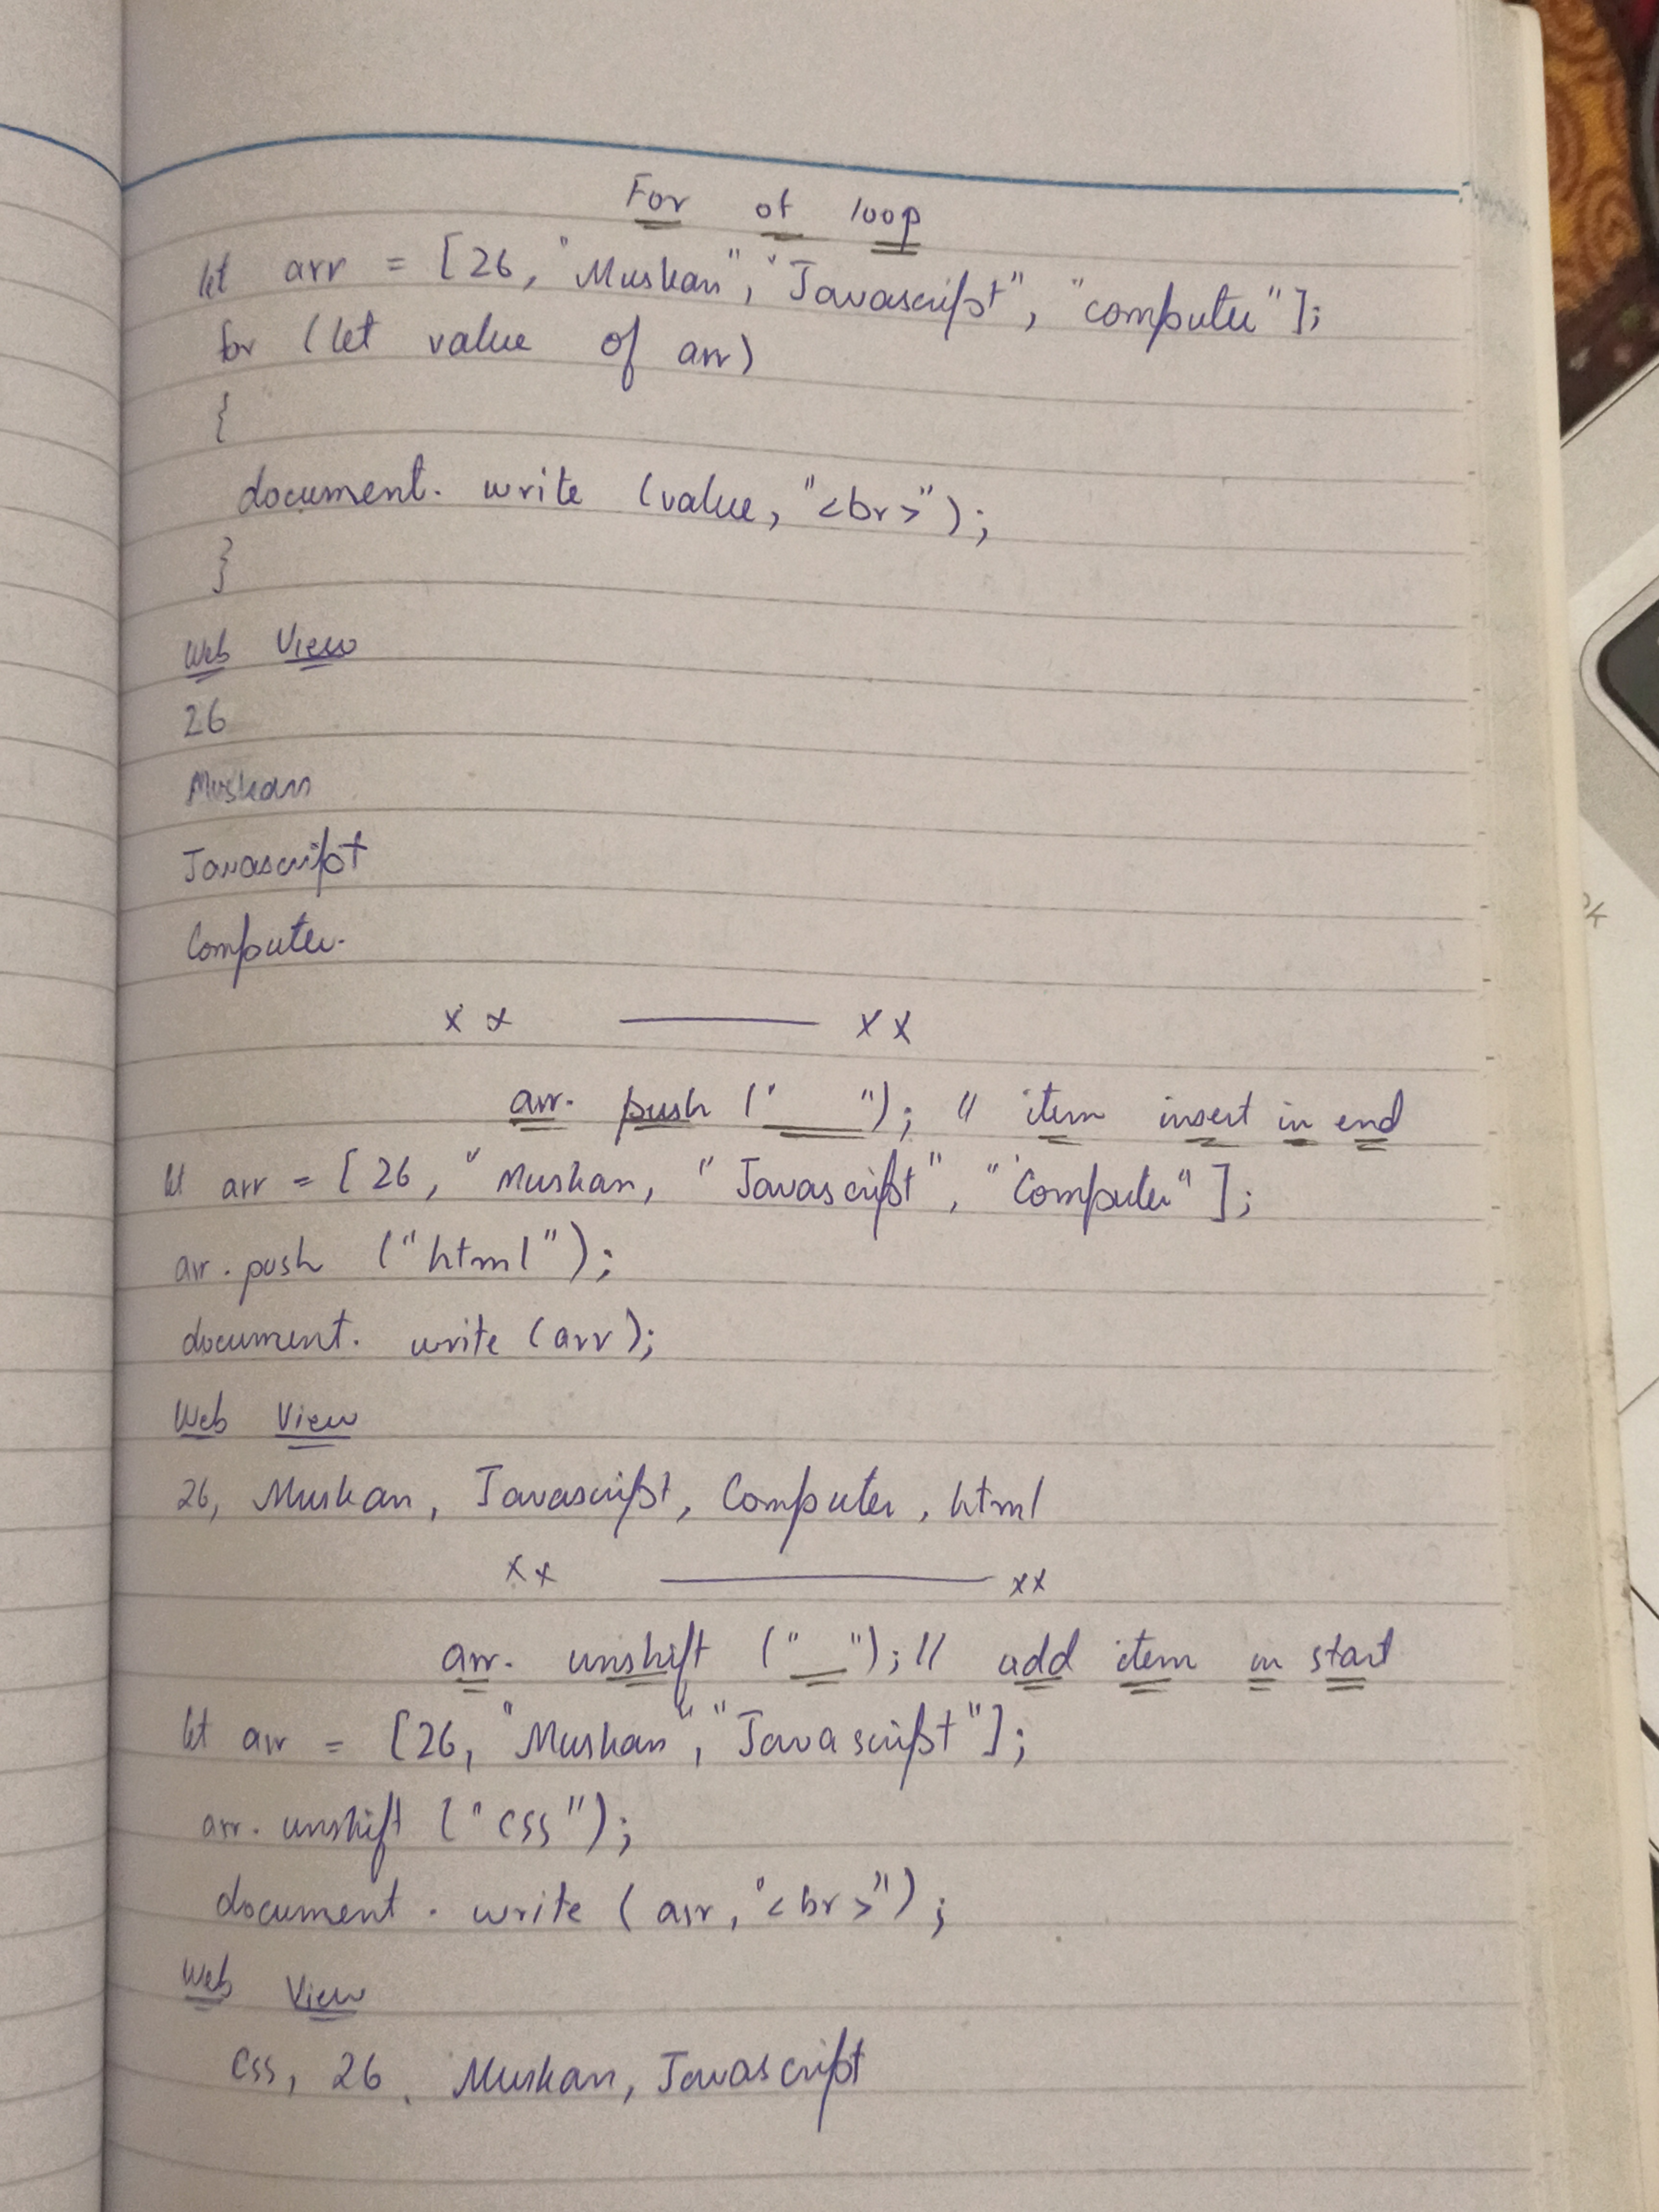 For of loop
let arr = [26, "Muskan", "Javascript", "computer"];
for (let value of arr)
{
document. write (value, "<br>");
}
Web View
26
Muskan
Javascript
Computer.
x x ——— x x
arr. push ("___"); // item insert in end
let arr = [26, "Muskan, "Javascript", "Computer"];
arr. push ("html");
document. write (arr);
Web View
26, Muskan, Javascript, Computer, html
x x ——— x x
arr. unshift ("__"); // add item in start
let arr = [26, "Muskan", "Javascript"];
arr. unshift ("css");
document. write (arr, "<br>");
Web View
css, 26, Muskan, Javascript